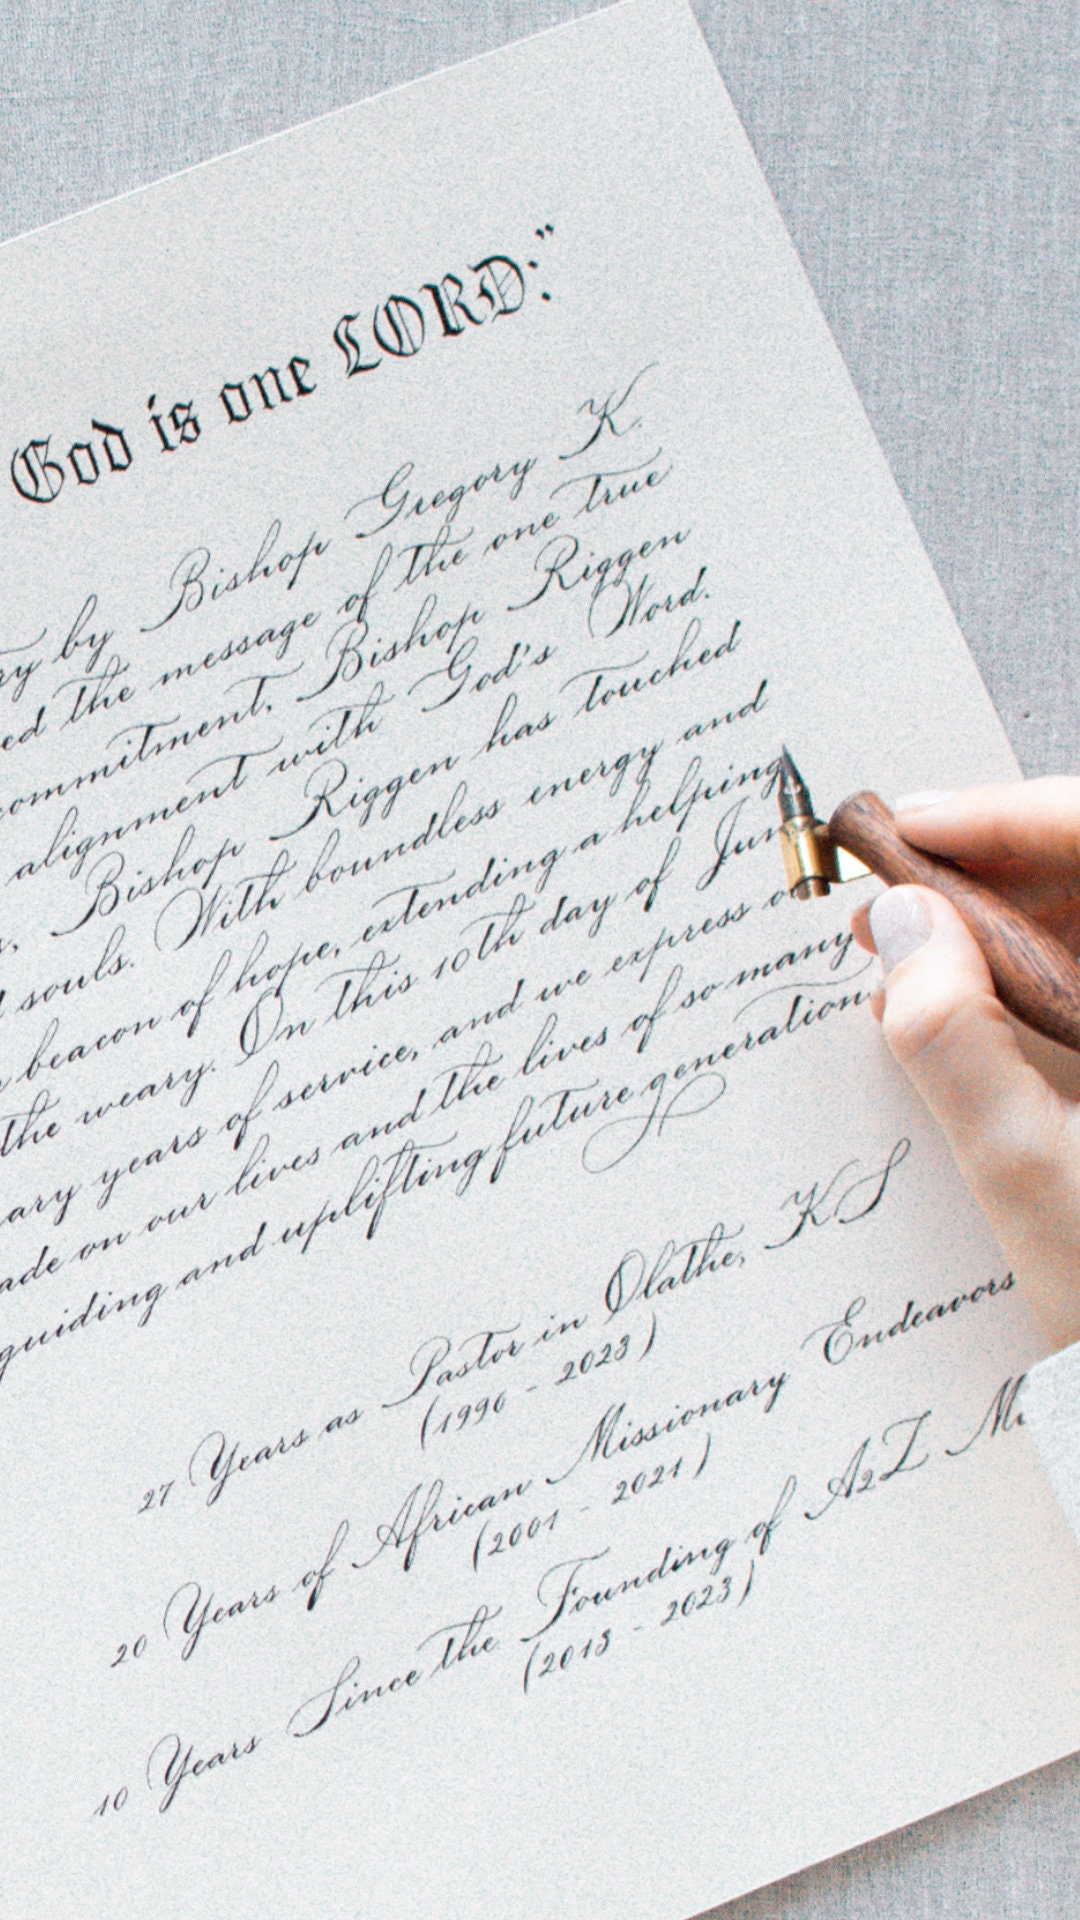 God is one LORD:"
by Bishop Gregory K.
the message of the one true
commitment, Bishop Riggen
alignment with God's Word.
Bishop Riggen has touched
souls. With boundless energy and
beacon of hope, extending a helping
the weary. On this 10th day of Jun
ary years of service, and we express o
ade on our lives and the lives of so many
guiding and uplifting future generation
27 Years as Pastor in Olathe, KS
(1996 - 2023)
20 Years of African Missionary Endeavors
(2001 - 2021)
10 Years Since the Founding of A2Z
(2013 - 2023)